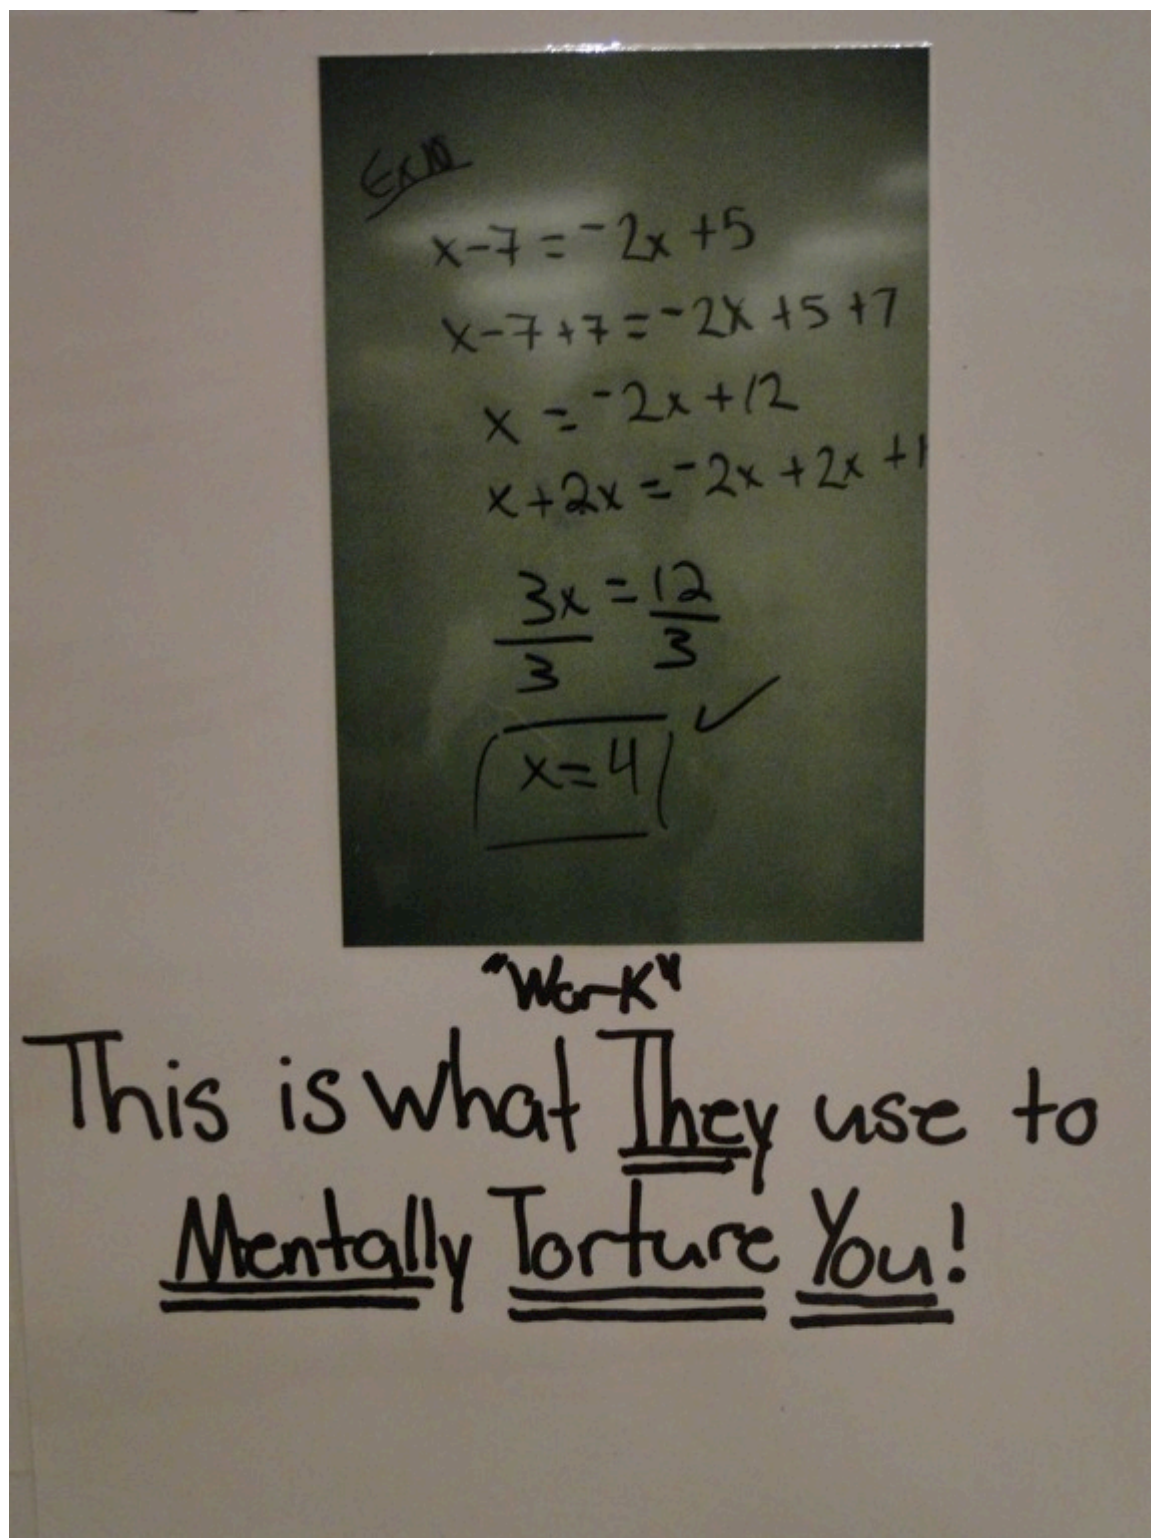 x-7=⁻2x+5
x-7+7=⁻2x+5+7
x=⁻2x+12
x+2x=⁻2x+2x+1
3x=12
3 3
x=4 ✓
"Work"
This is what They use to
Mentally Torture You!